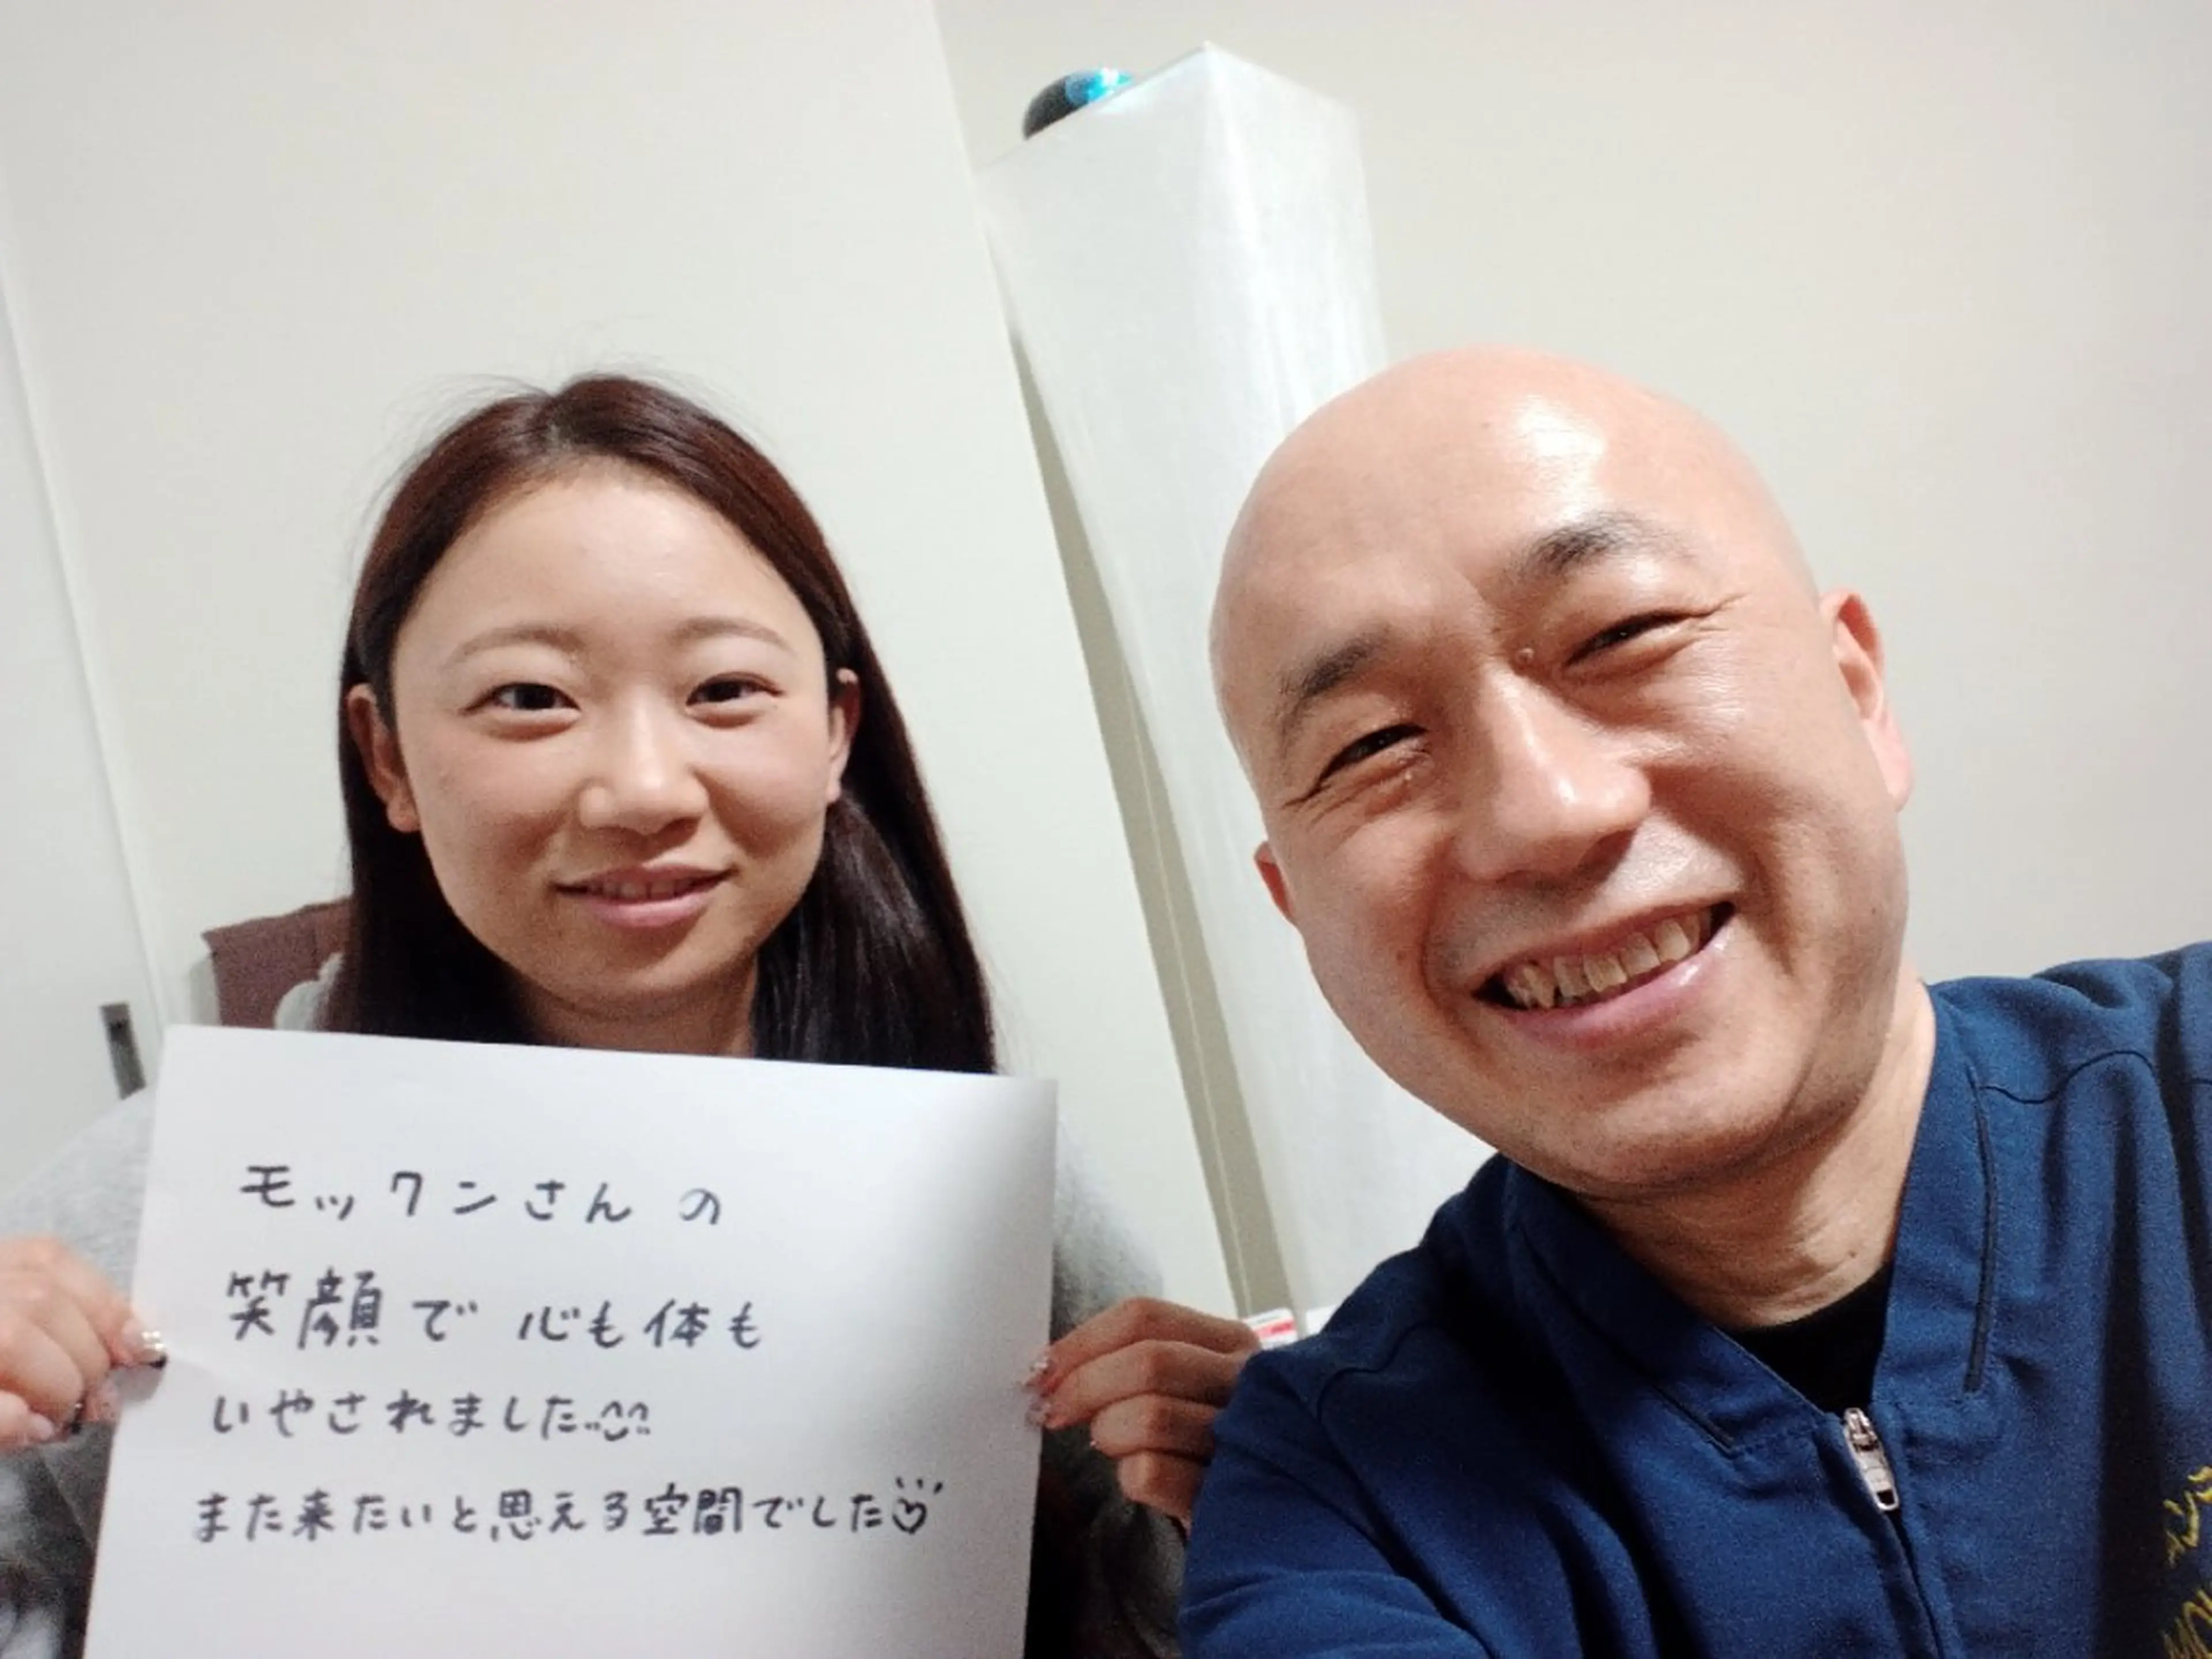 モックンさんの
笑顔で心も体も
いやされました
また来たいと思える空間でした